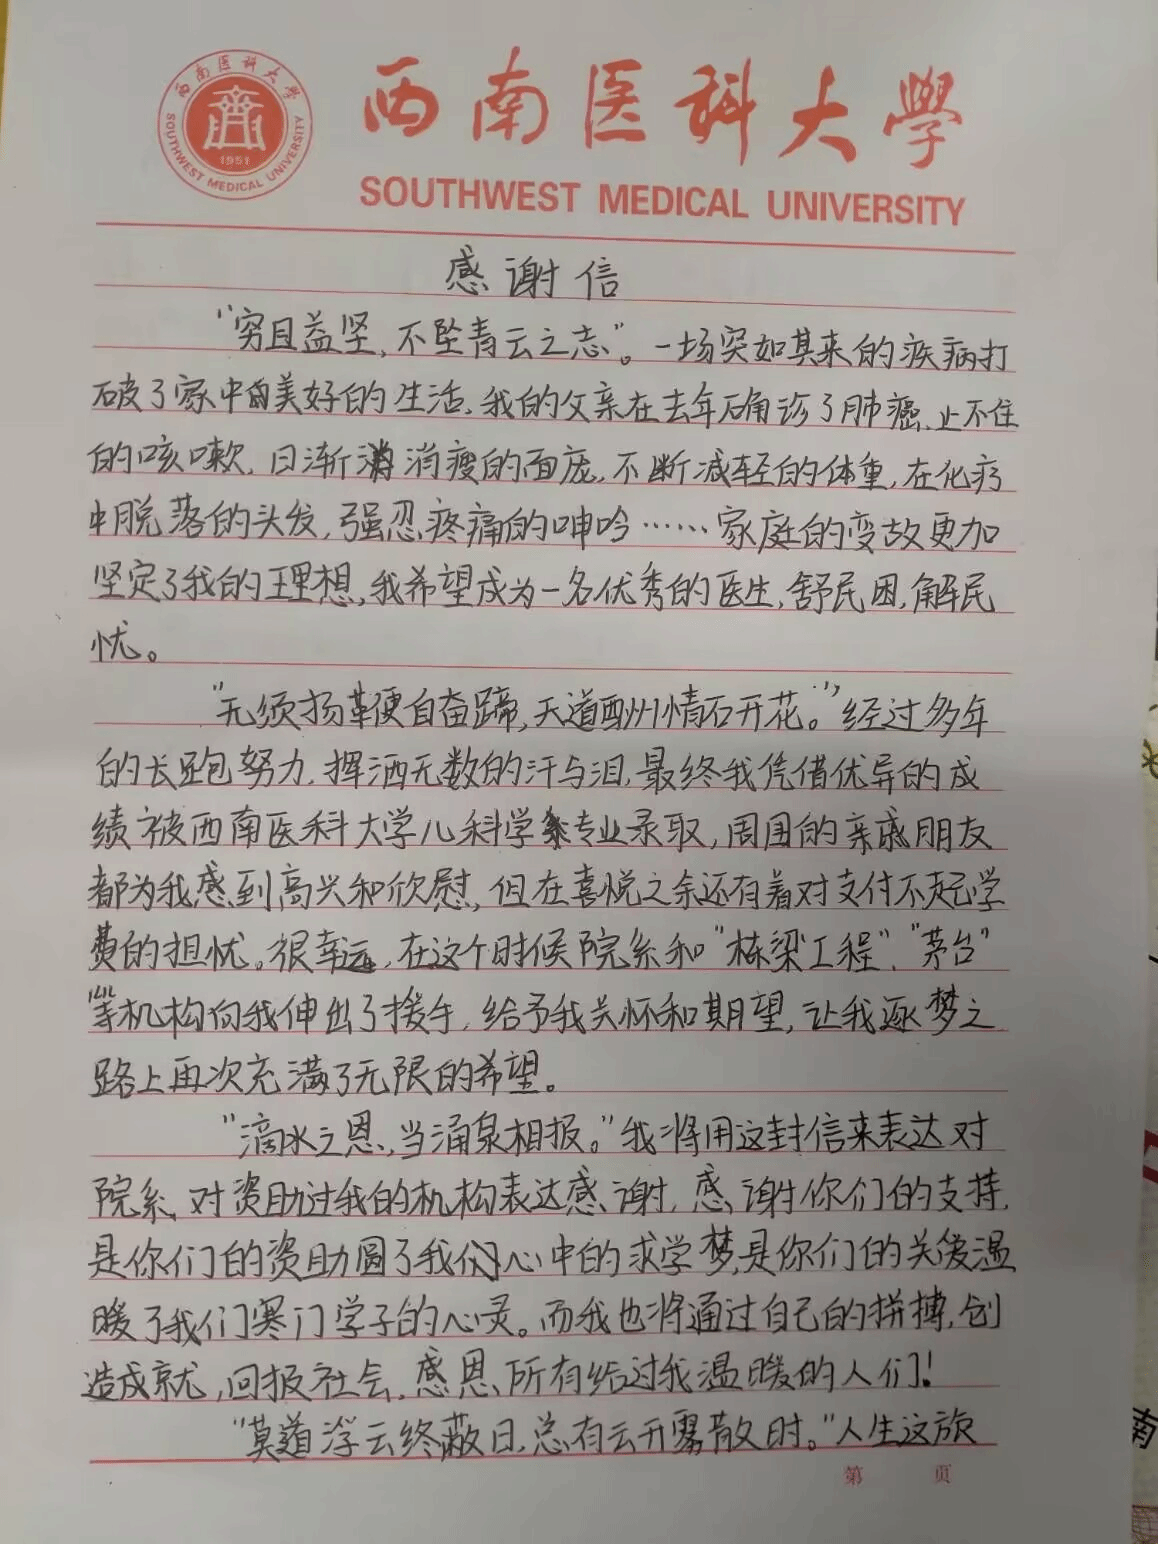 西南医科大学
SOUTHWEST MEDICAL UNIVERSITY
1951
西南医科大學
SOUTHWEST MEDICAL UNIVERSITY
感谢信
“穷且益坚,不坠青云之志”。一场突如其来的疾病打
破了家中的美好的生活,我的父亲在去年确诊了肺癌,止不住
的咳嗽,日渐消瘦的面庞,不断减轻的体重,在化疗
中脱落的头发,强忍疼痛的呻吟……家庭的变故更加
坚定了我的理想,我希望成为一名优秀的医生,舒民困,解民
忧。
“无须扬鞭便自奋蹄,天道酬州情石开花。”经过多年
的长跑努力,挥洒无数的汗与泪,最终我凭借优异的成
绩被西南医科大学儿科学专业录取,周围的亲戚朋友
都为我感到高兴和欣慰,但在喜悦之余还有着对支付不起学
费的担忧。很幸运,在这个时候院系和“栋梁工程”、“茅台”
等机构向我伸出了援手,给予我关怀和期望,让我逐梦之
路上再次充满了无限的希望。
“滴水之恩,当涌泉相报。”我将用这封信来表达对
院系,对资助过我的机构表达感谢,感谢你们的支持,
是你们的资助圆了我们心中的求学梦,是你们的关爱温
暖了我们寒门学子的心灵。而我也将通过自己的拼搏,创
造成就,回报社会,感恩所有给过我温暖的人们!
“莫道浮云终蔽日,总有云开雾散时。”人生这旅
第 页
南